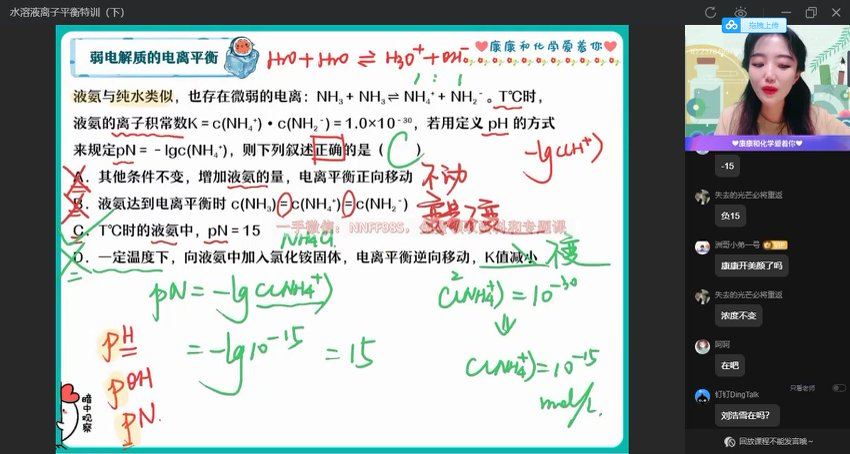 水溶液离子平衡特训（下）
拖拽上传
弱电解质的电离平衡
H₂O + H₂O ⇌ H₃O⁺ + OH⁻
1 : 1
康康和化学爱着你
液氨与纯水类似，也存在微弱的电离：NH₃ + NH₃ ⇌ NH₄⁺ + NH₂⁻。T℃时，
液氨的离子积常数K = c(NH₄⁺)·c(NH₂⁻) = 1.0×10⁻³⁰，若用定义 pH 的方式
来规定pN = －lgc(NH₄⁺)，则下列叙述正确的是（ C ）
-lgc(H⁺)
A．其他条件不变，增加液氨的量，电离平衡正向移动 不动
B．液氨达到电离平衡时 c(NH₃) = c(NH₄⁺) = c(NH₂⁻)
C．T℃时的液氨中，pN = 15
NH₄Cl
D．一定温度下，向液氨中加入氯化铵固体，电离平衡逆向移动，K值减小 不变
pN = -lgc(NH₄⁺)
= -lg10⁻¹⁵ = 15
c²(NH₄⁺) = 10⁻³⁰
⇓
c(NH₄⁺) = 10⁻¹⁵
mol/L
pH
pOH
pN.
暗中观察
康康和化学爱着你
-15
失去的光芒必将重返
负15
洲哥小弟一号
VIP
康康开美颜了吗
失去的光芒必将重返
浓度不变
呵呵
在吧
只看老师
钉钉DingTalk
刘浩雪在吗？
回放课程不能发言哦~